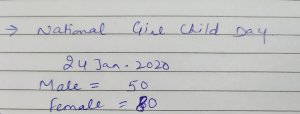 → National Girl Child Day
24 Jan. 2020
Male = 50
Female = 80